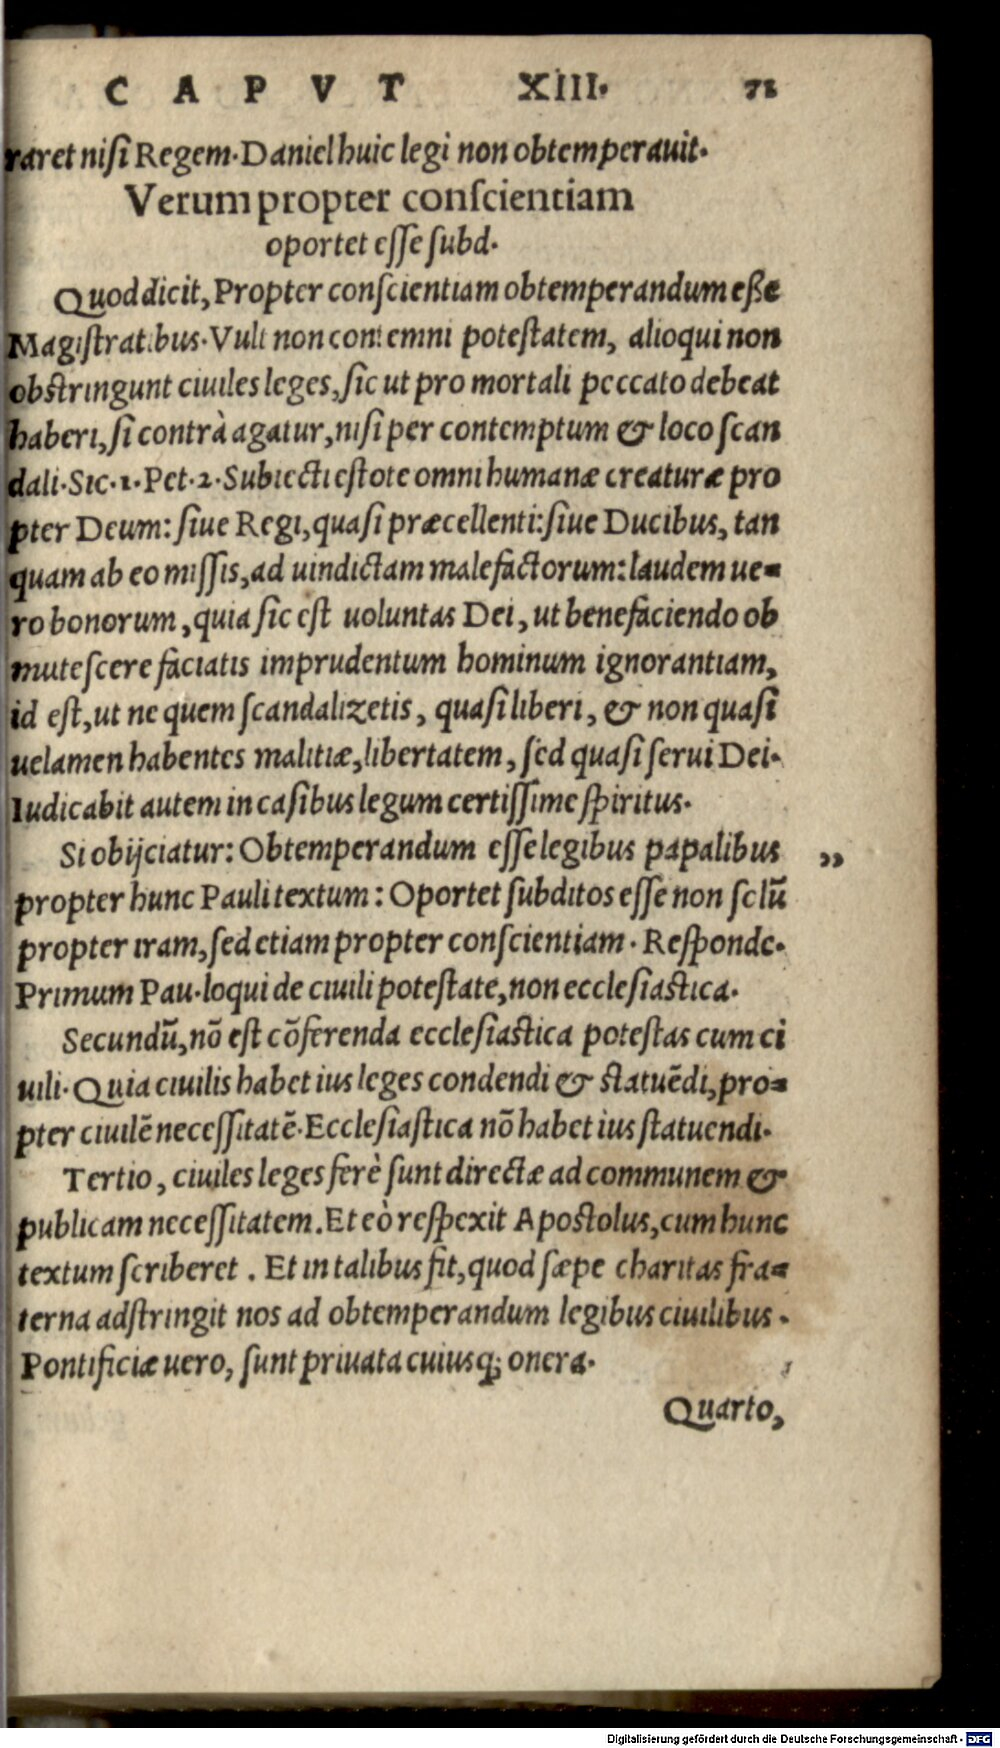 CAPVT XIII. 72
raret nisi Regem. Daniel huic legi non obtemperauit.
Verum propter conscientiam
oportet esse subd.
Quod dicit, Propter conscientiam obtemperandum eße
Magistratibus. Vult non contemni potestatem, alioqui non
obstringunt ciuiles leges, sic ut pro mortali peccato debeat
haberi, si contrà agatur, nisi per contemptum & loco scan
dali. Sic. 1. Pet. 2. Subiecti estote omni humanæ creaturæ pro
pter Deum: siue Regi, quasi præcellenti: siue Ducibus, tan
quam ab eo missis, ad uindictam malefactorum: laudem ue=
ro bonorum, quia sic est uoluntas Dei, ut benefaciendo ob
mutescere faciatis imprudentum hominum ignorantiam,
id est, ut ne quem scandalizetis, quasi liberi, & non quasi
uelamen habentes malitiæ, libertatem, sed quasi serui Dei.
Iudicabit autem in casibus legum certissime spiritus.
Si obijciatur: Obtemperandum esse legibus papalibus „
propter hunc Pauli textum: Oportet subditos esse non solū
propter iram, sed etiam propter conscientiam. Responde.
Primum Pau. loqui de ciuili potestate, non ecclesiastica.
Secundū, nō est cōferenda ecclesiastica potestas cum ci
uili. Quia ciuilis habet ius leges condendi & statuēdi, pro=
pter ciuilē necessitatē. Ecclesiastica nō habet ius statuendi.
Tertio, ciuiles leges ferè sunt directæ ad communem &
publicam necessitatem. Et eò respexit Apostolus, cum hunc
textum scriberet. Et in talibus fit, quod sæpe charitas fra=
terna adstringit nos ad obtemperandum legibus ciuilibus.
Pontificiæ uero, sunt priuata cuiusq; onera.
Quarto,
Digitalisierung gefördert durch die Deutsche Forschungsgemeinschaft - DFG